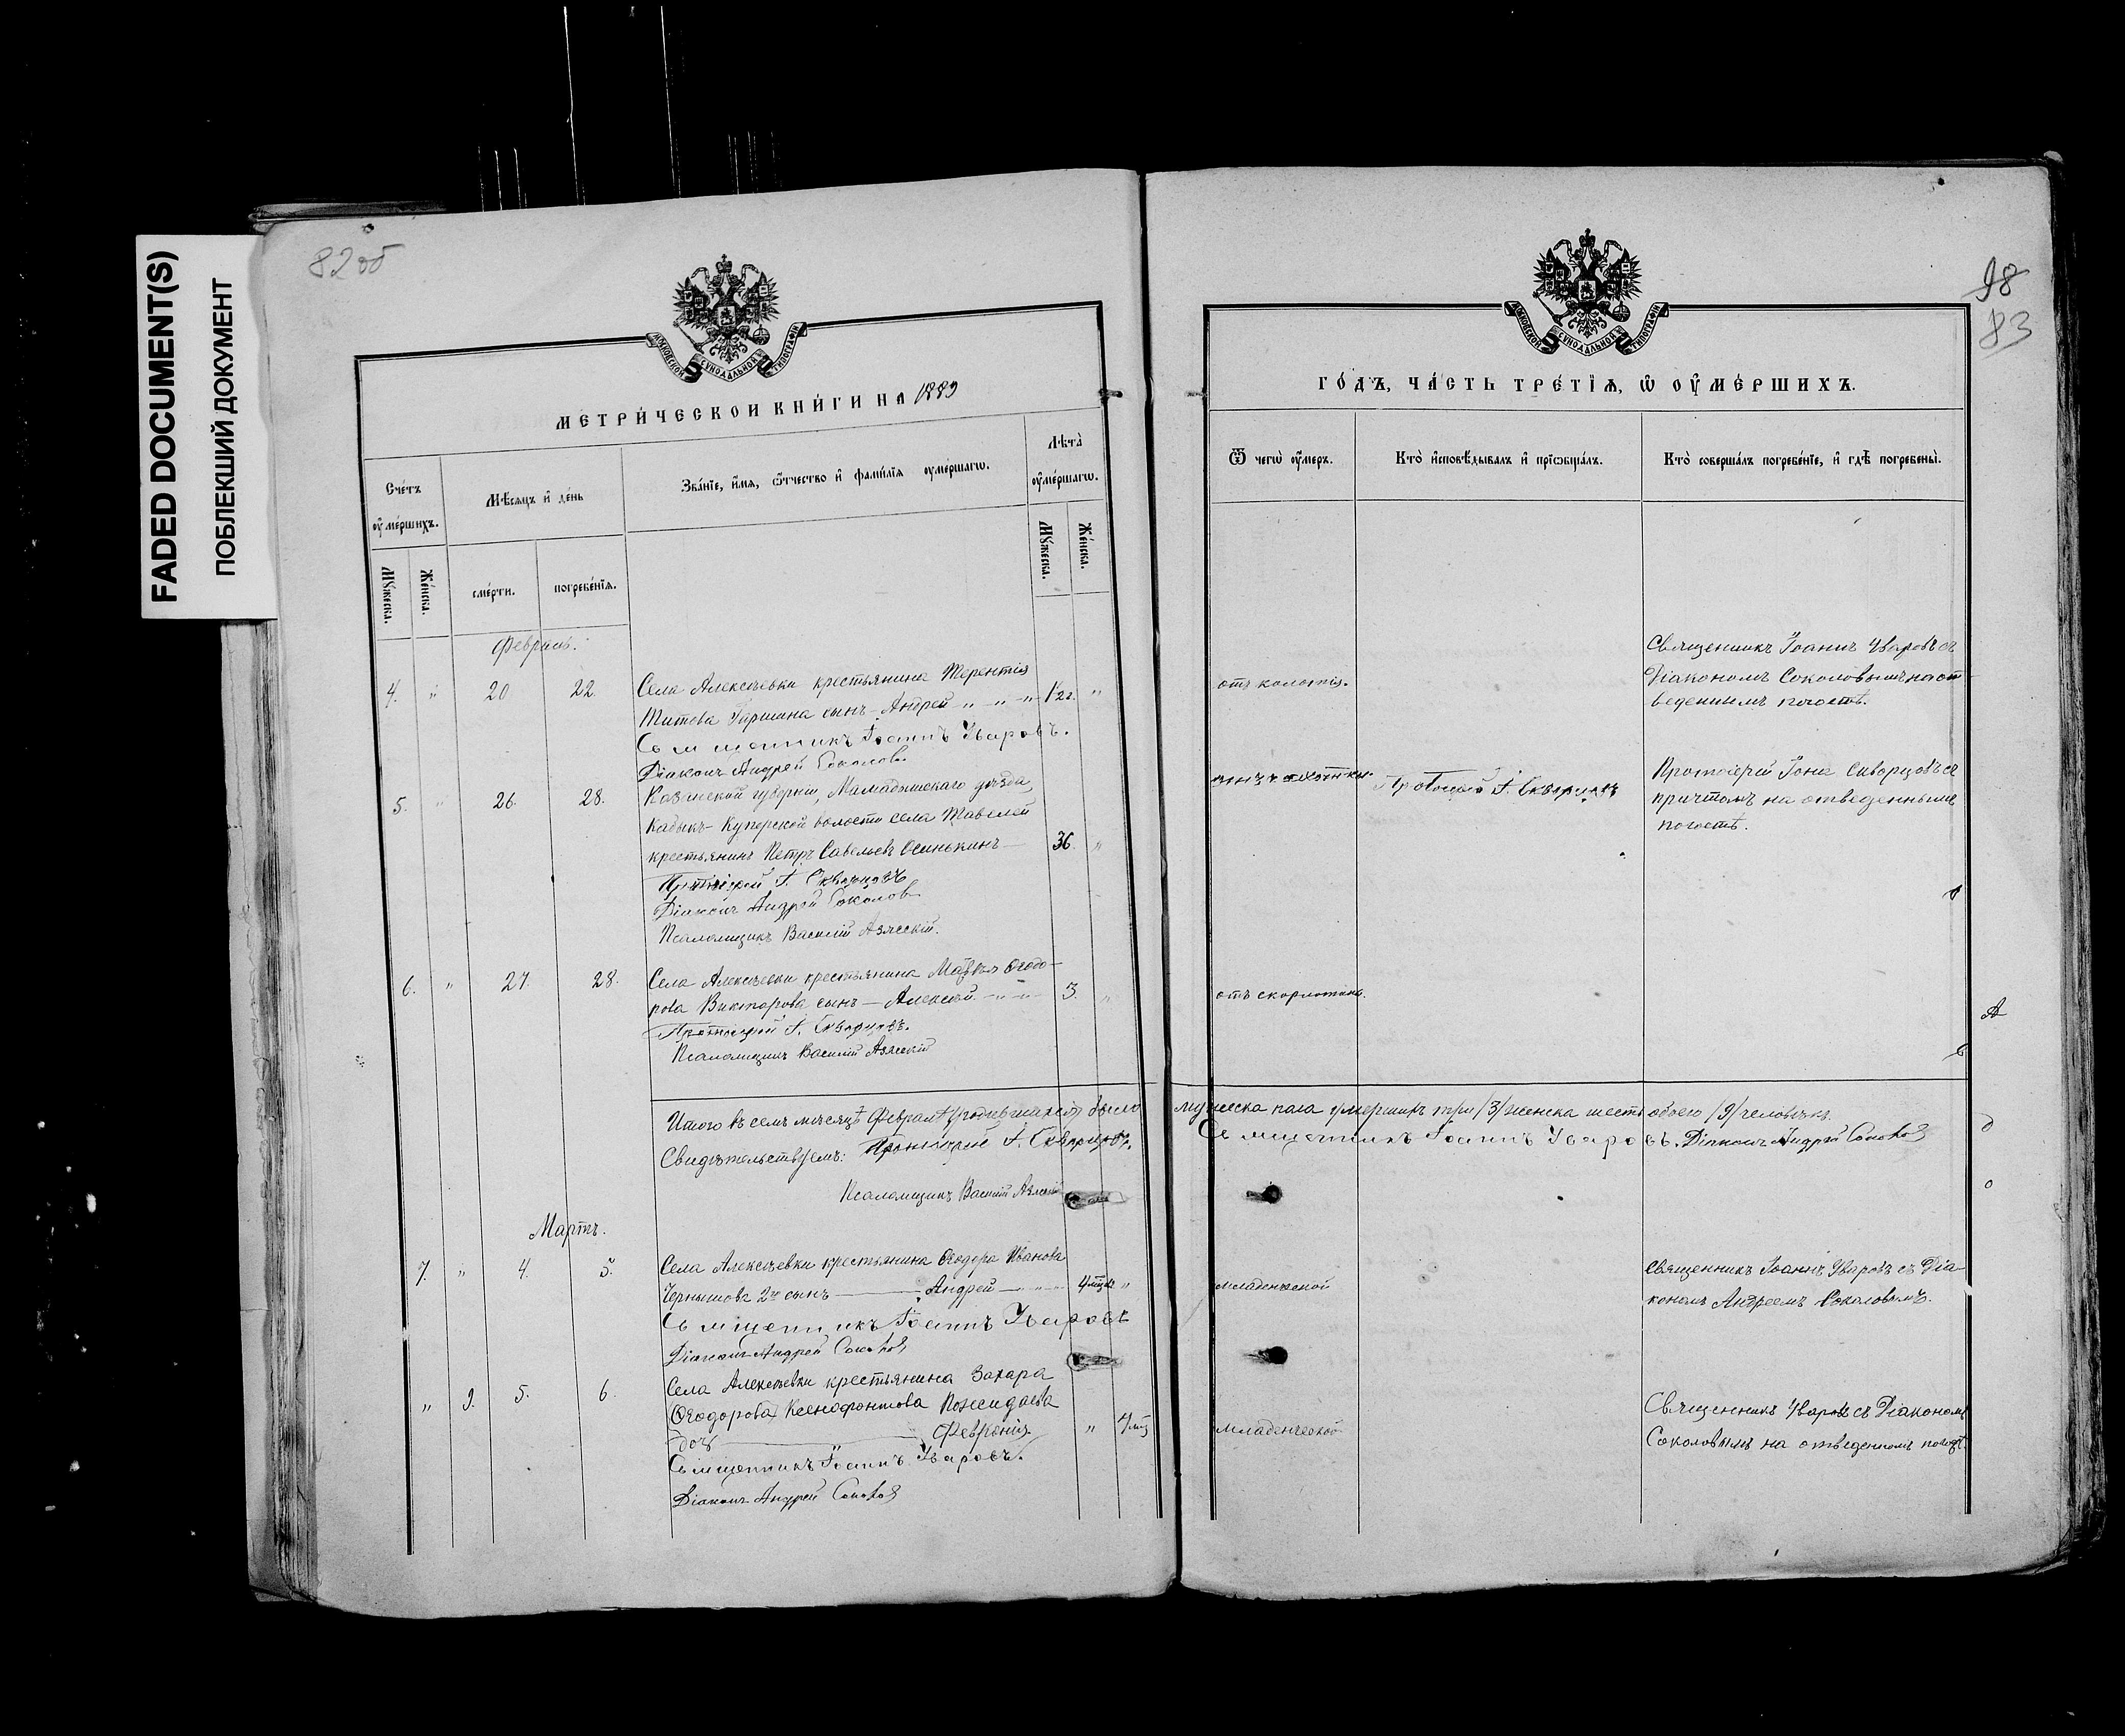 FADED DOCUMENT(S)
ПОБЛЕКШИЙ ДОКУМЕНТ
82об
МОСКОВСКОЙ СѴНОДАЛЬНОЙ ТИПОГРАФІИ
МЕТРИ́ЧЕСКОЙ КНИ́ГИ НА 1889
Сче́тъ оу҆ме́ршихъ.
Мѣ́сяцъ и҆ де́нь
Зва́нїе, и҆́мѧ, ѻ҆́тчество и҆ фами́лїѧ оу҆ме́ршагѡ.
Лѣта̀ оу҆ме́ршагѡ.
Мꙋ́жеска.
Же́нска.
сме́рти.
погребе́нїѧ.
Мꙋ́жеска.
Же́нска.
Февраль.
4. " 20 22. Села Алексѣевки крестьянина Терентія
Титова Гаршина сынъ - Андрей " - " - " 1/2 г. "
Священникъ Іоаннъ Уваровъ.
Діаконъ Андрей Соколов.
5. " 26. 28. Казанской губерніи, Мамадышскаго уѣзда,
Кадыкъ-Куперской волости села Тавелей
крестьянинъ Петръ Савельевъ Осинькинъ 36. "
Протоіерей І. Скворцовъ
Діаконъ Андрей Соколов
Псаломщикъ Василій Азлескій.
6. " 27. 28. Села Алексѣевки крестьянина Матвѣя Ѳеодо-
рова Викторова сынъ - Алексѣй. - " - " - 3. "
Протоіерей І. Скворцовъ.
Псаломщикъ Василій Азлескій
Итого въ семъ мѣсяцѣ Февралѣ было
Свидѣтельствуемъ: Протоіерей І. Скворцовъ.
Псаломщикъ Василій
Мартъ.
7. " 4. 5. Села Алексѣевки крестьянина Ѳеодора Иванова
Чернышова 2го сынъ Андрей 4 мцъ "
Священникъ Іоаннъ Уваровъ
Діаконъ Андрей Соколов
" 9. 5. 6. Села Алексѣевки крестьянина Захара
Ѳеодорова Ксенофонтова Пожидаева
дочь Февронія " 4 мц
Священникъ Іоаннъ Уваровъ.
Діаконъ Андрей Соколов
98
83
МОСКОВСКОЙ СѴНОДАЛЬНОЙ ТИПОГРАФІИ
ГО́ДЪ, ЧА́СТЬ ТРЕ́ТЇѦ, Ѡ҆ ОУ҆МЕ́РШИХЪ.
Ѿ чегѡ̀ оу҆́меръ.
Кто̀ и҆сповѣ́дывалъ и҆ прїѡбща́лъ.
Кто̀ соверша́лъ погребе́нїе, и҆ гдѣ̀ погребены̀.
Священникъ Іоаннъ Уваровъ съ
отъ колотія. Діакономъ Соколовымъ на от-
веденнымъ погостѣ.
Протоіерей І. Скворцовъ
Протоіерей Іона Скворцовъ съ
причтомъ на отведеннымъ
погостѣ.
отъ скорлотины.
мужеска пола умершихъ три /3/ женска шесть обоего /9/ человѣкъ.
Священникъ Іоаннъ Уваровъ. Діаконъ Андрей Соколов
Священникъ Іоаннъ Уваровъ съ Діа-
младенческой кономъ Андреемъ Соколовымъ.
Священникъ Уваровъ съ Діакономъ
младенческой Соколовымъ на отведенномъ погостѣ.